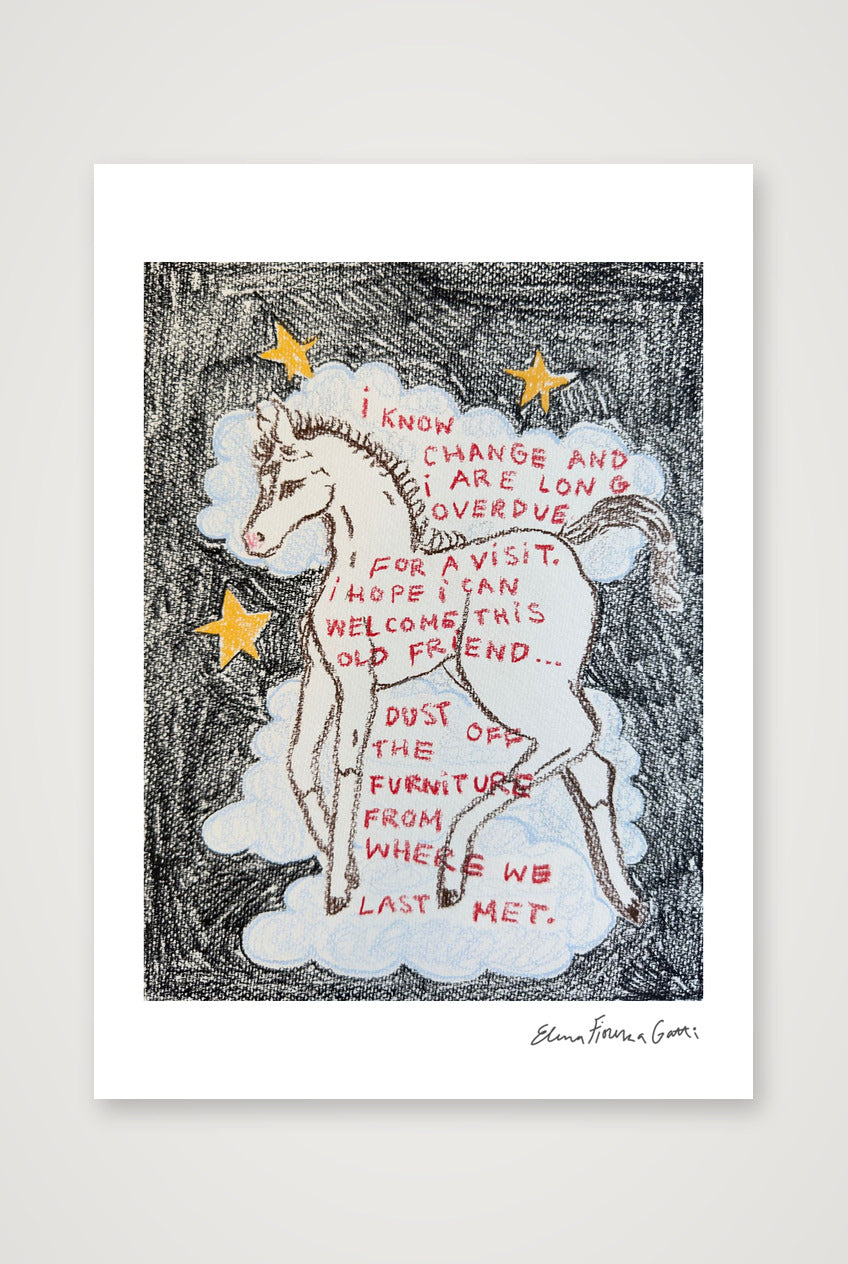 i KNOW
CHANGE AND
i ARE LONG
OVERDUE
FOR A VISiT.
i HOPE i CAN
WELCOME THiS
OLD FRiEND...
DUST OFF
THE
FURNiTURE
FROM
WHERE WE
LAST MET.
Elena Fiorenza Gatti